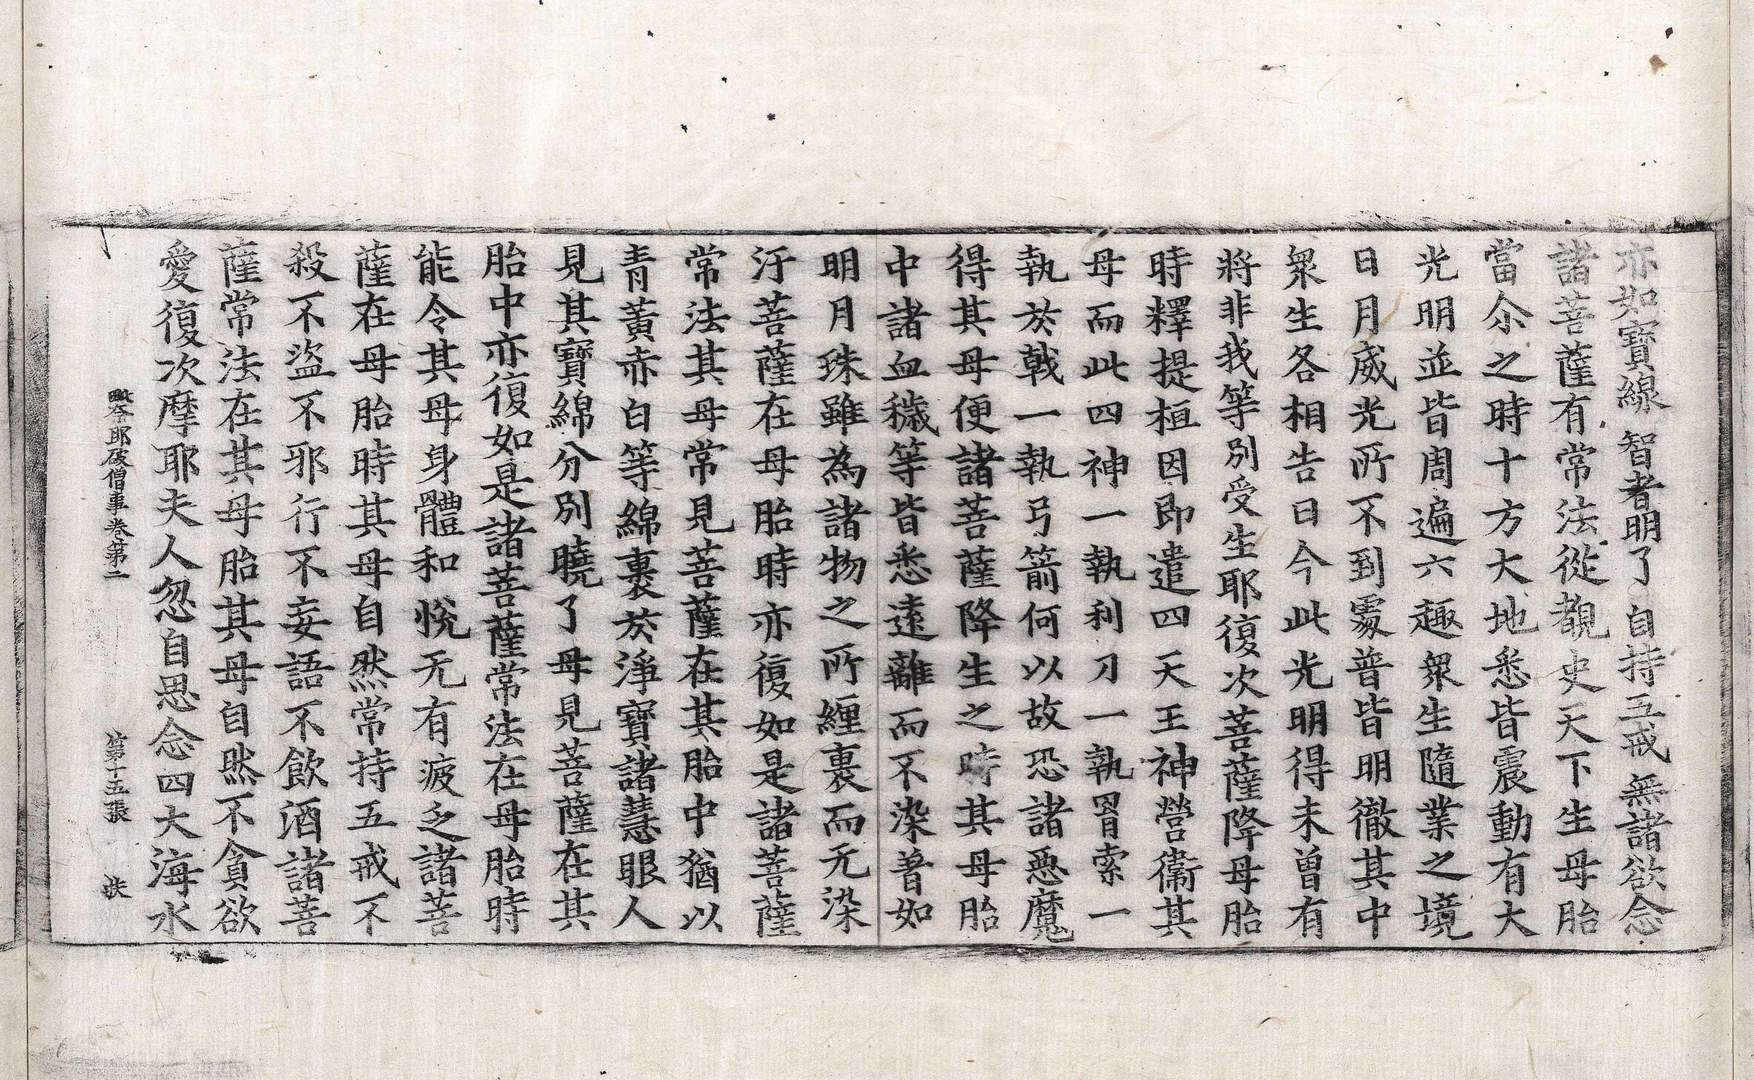 亦如寶線 智者明了 自持五戒 無諸欲念
諸菩薩有常法從覩史天下生母胎
當尒之時十方大地悉皆震動有大
光明並皆周遍六趣衆生隨業之境
日月威光所不到處普皆明徹其中
衆生各相告曰今此光明得未曾有
將非我等別受生耶復次菩薩降母胎
時釋提桓因即遣四天王神營衞其
母而此四神一執利刀一執罥索一
執於戟一執弓箭何以故恐諸惡魔
得其母便諸菩薩降生之時其母胎
中諸血穢等皆悉遠離而不染著如
明月珠雖為諸物之所纏裹而无染
汙菩薩在母胎時亦復如是諸菩薩
常法其母常見菩薩在其胎中猶以
青黃赤白等綿裹於淨寶諸慧眼人
見其寶綿分別曉了母見菩薩在其
胎中亦復如是諸菩薩常法在母胎時
能令其母身體和悅无有疲乏諸菩
薩在母胎時其母自然常持五戒不
殺不盜不邪行不妄語不飲酒諸菩
薩常法在其母胎其母自然不貪欲
愛復次摩耶夫人忽自思念四大海水
奈耶破僧事卷第二 第十五張